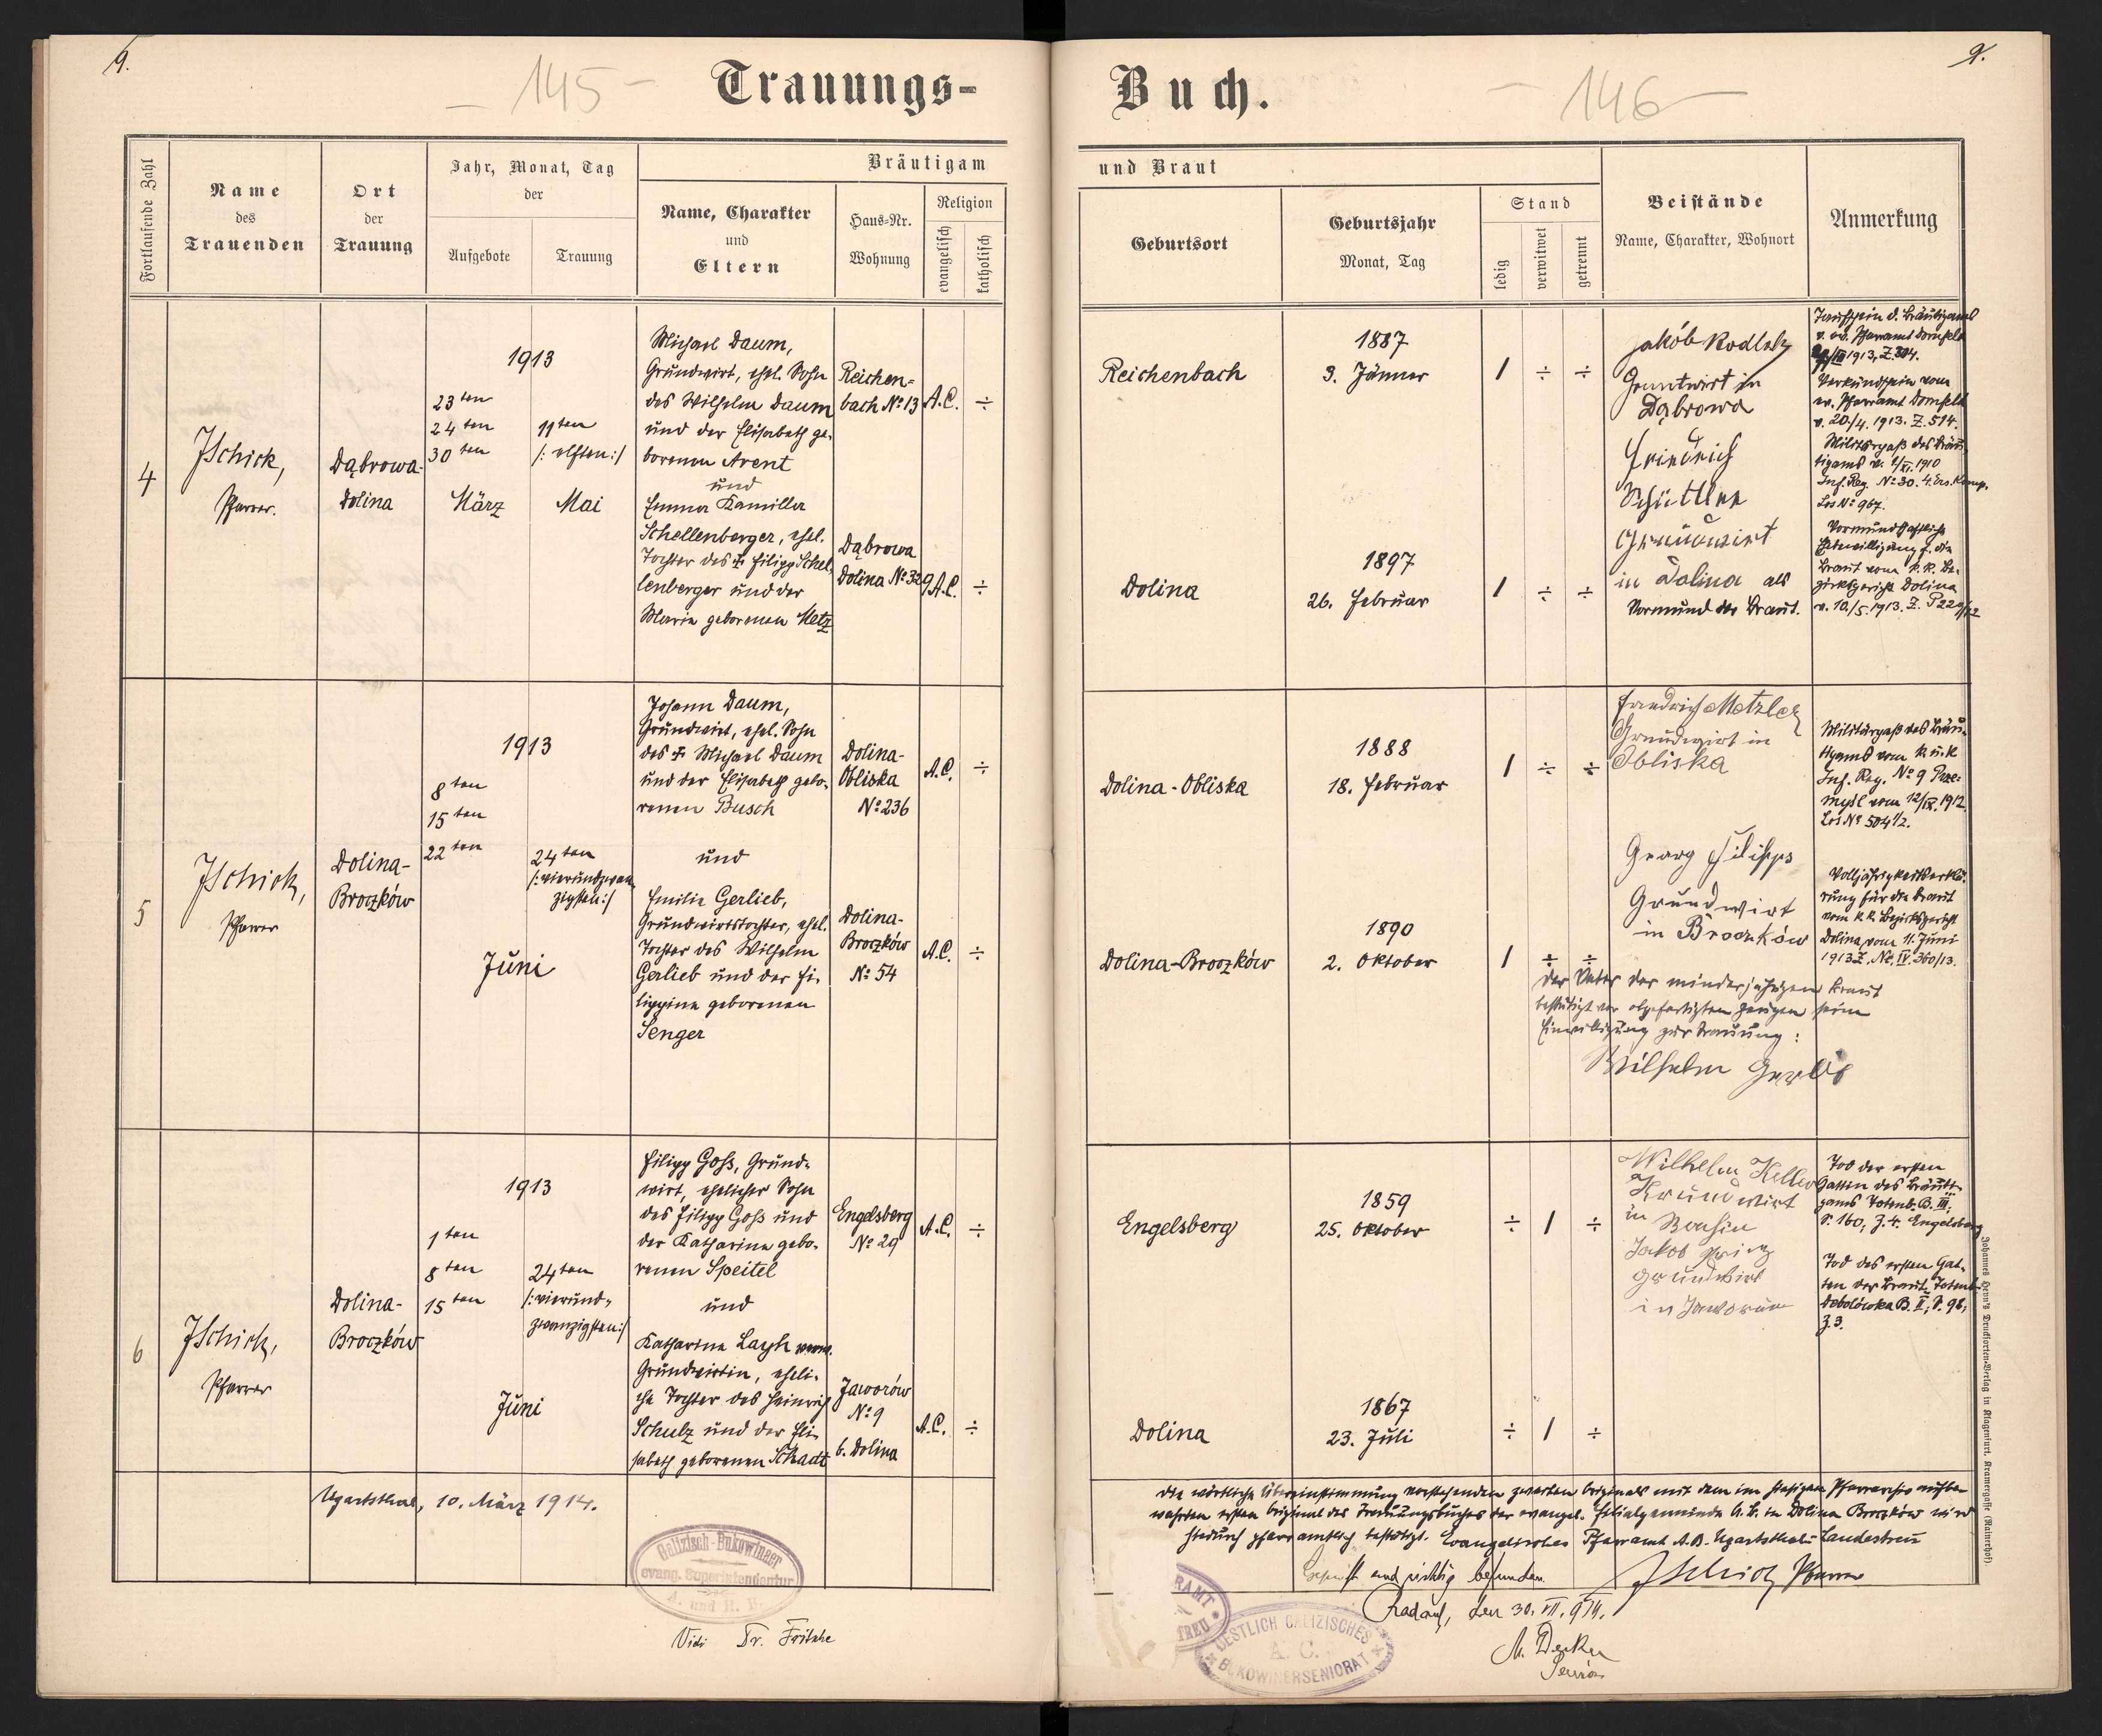 9.
9.
- 145 -
- 146 -
Trauungs-
Buch.
Fortlaufende Zahl
Name
des
Trauenden
Ort
der
Trauung
Jahr, Monat, Tag
der
Aufgebote
Trauung
Bräutigam
Name, Charakter
und
Eltern
Haus-Nr.
Wohnung
Religion
evangelisch
katholisch
und Braut
Geburtsort
Geburtsjahr
Monat, Tag
Stand
ledig
verwitwet
getrennt
Beistände
Name, Charakter, Wohnort
Anmerkung
4
JSchick,
Pfarrer.
Dąbrowa-
Dolina
1913
23ten
24ten
30ten
März
11ten
/: elften:/
Mai
Michael Daum,
Grundwirt, ehel. Sohn
des Wilhelm Daum
und der Elisabeth ge-
borenen Arent
und
Emma Kamilla
Schellenberger, ehel.
Tochter des ‡ Filipp Schel-
lenberger und der
Maria geborenen Metz
Reichen-
bach № 13
Dąbrowa
Dolina № 329
A.C. ÷
A.C. ÷
Reichenbach
1887
3. Jänner
1 ÷ ÷
Dolina
1897
26. Februar
1 ÷ ÷
Jakób
Gruntwirt in
Dąbrowa
Friedrich
Schüttler
Grundwirt
in Dolina als
Vormund der Braut.
Taufschein d. Bräutigams
v. ev. Pfarramt Dornfeld
1913, Z. 304.
Verkündschein vom
ev. Pfarramt Dornfeld
v. 20./4. 1913. Z. 514.
Militärpaß des Bräu-
tigams v. 1/XI. 1910
Inf. Reg. № 30. 4. Ers. Komp.
Los № 967.
Vormundschaftliche
Bewilligung f. die
Braut vom k. k. Be-
zirksgericht Dolina
v. 10./5. 1913. Z.
5
JSchick,
Pfarrer
Dolina-
Broczków
1913
8ten
15ten
22ten
24ten
/: vierundzwan-
zigsten:/
Juni
Johann Daum,
Grundwirt, ehel. Sohn
des ‡ Michael Daum
und der Elisabeth gebo-
renen Busch
und
Emilie Gerlieb,
Grundwirtstochter, ehel.
Tochter des Wilhelm
Gerlieb und der Fi-
lippine geborenen
Senger
Dolina-
Obliska
№ 236
Dolina-
Broczków
№ 54
A.C. ÷
A.C. ÷
Dolina-Obliska
1888
18. Februar
1 ÷ ÷
Dolina-Broczków
1890
2. Oktober
1 ÷ ÷
Friedrich Metzler
Grundwirt in
Obliska
Georg Filipps
Grundwirt
in Broczków
Militärpaß des Bräu-
tigams vom k. u. k
Inf. Reg. № 9 Prze-
myśl vom 12/IX. 1912
Los № 504 1/2.
Volljährigkeitserklä-
rung für die Braut
vom k. k. Bezirksgericht
Dolina, vom 11. Juni
1913 Z. Nc. IV. 360/13.
Der Vater der minderjährigen Braut
bestätigt vor obgefertigten Zeugen seine
Einwilligung zur Trauung:
Wilhelm Gerlib
6
JSchick,
Pfarrer
Dolina-
Broczków
1913
1ten
8ten
15ten
24ten
/: vierund-
zwanzigsten:/
Juni
Filipp Goß, Grund-
wirt, ehelicher Sohn
des Filipp Goß und
der Katharina gebo-
renen Speitel
und
Katharina Layh verw.
Grundwirtin, eheli-
che Tochter des Heinrich
Schulz und der Eli-
sabeth geborenen Schaad
Engelsberg
№ 29
Jaworów
№ 9
b. Dolina
A.C. ÷
A.C. ÷
Engelsberg
1859
25. Oktober
÷ 1 ÷
Dolina
1867
23. Juli
÷ 1 ÷
Wilhelm Keller
Grundwirt
in
Jakob
Grundwirt
in Jaworów
Tod der ersten
Gattin des Bräuti-
gams Totenb. B. III,
S. 160, Z. 4. Engelsberg
Tod des ersten Gat-
ten der Braut. Totenb.
Debolówka B. II, S. 98,
Z. 3.
Ugartsthal, 10. März 1914.
Galizisch-Bukowinaer
evang. Superintendentur
A. und H. B.
Vidi Dr. Fritsche
Die wörtliche Übereinstimmung vorstehenden zweiten Originals mit dem im hiesigen Pfarrarchiv aufbe-
wahrten ersten Original des Trauungsbuches der evangel. Filialgemeinde A. B. in Dolina Broczków wird
hiedurch pfarramtlich bestätigt. Evangelisches Pfarramt A. B. Ugartsthal-Landestreu
JSchick Pfarrer
Geprüft und richtig befunden.
Radautz, den 30. VII. 914.
M. Decker
Senior
RAMT
TREU
OESTLICH GALIZISCHES
A. C.
BUKOWINERSENIORAT
Johannes Heyn's Drucksorten-Verlag in Klagenfurt, Kramergasse (Rainerhof).